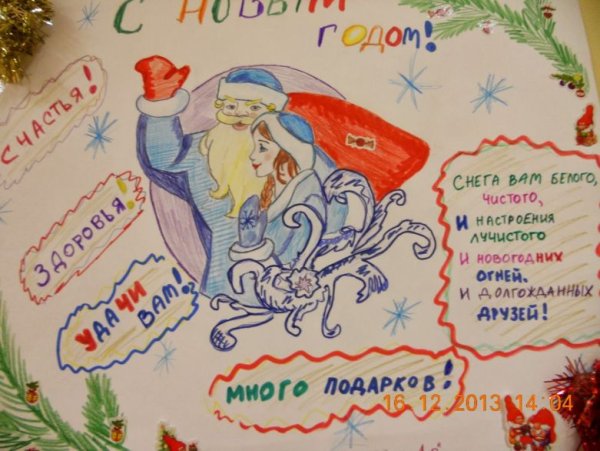 С НОВЫМ
ГОДОМ!
СЧАСТЬЯ!
ЗДОРОВЬЯ!
УДАЧИ
ВАМ!
СНЕГА ВАМ БЕЛОГО,
ЧИСТОГО,
И НАСТРОЕНИЯ
ЛУЧИСТОГО
И НОВОГОДНИХ
ОГНЕЙ.
И ДОЛГОЖДАННЫХ
ДРУЗЕЙ!
МНОГО ПОДАРКОВ!
16.12.2013 14:04